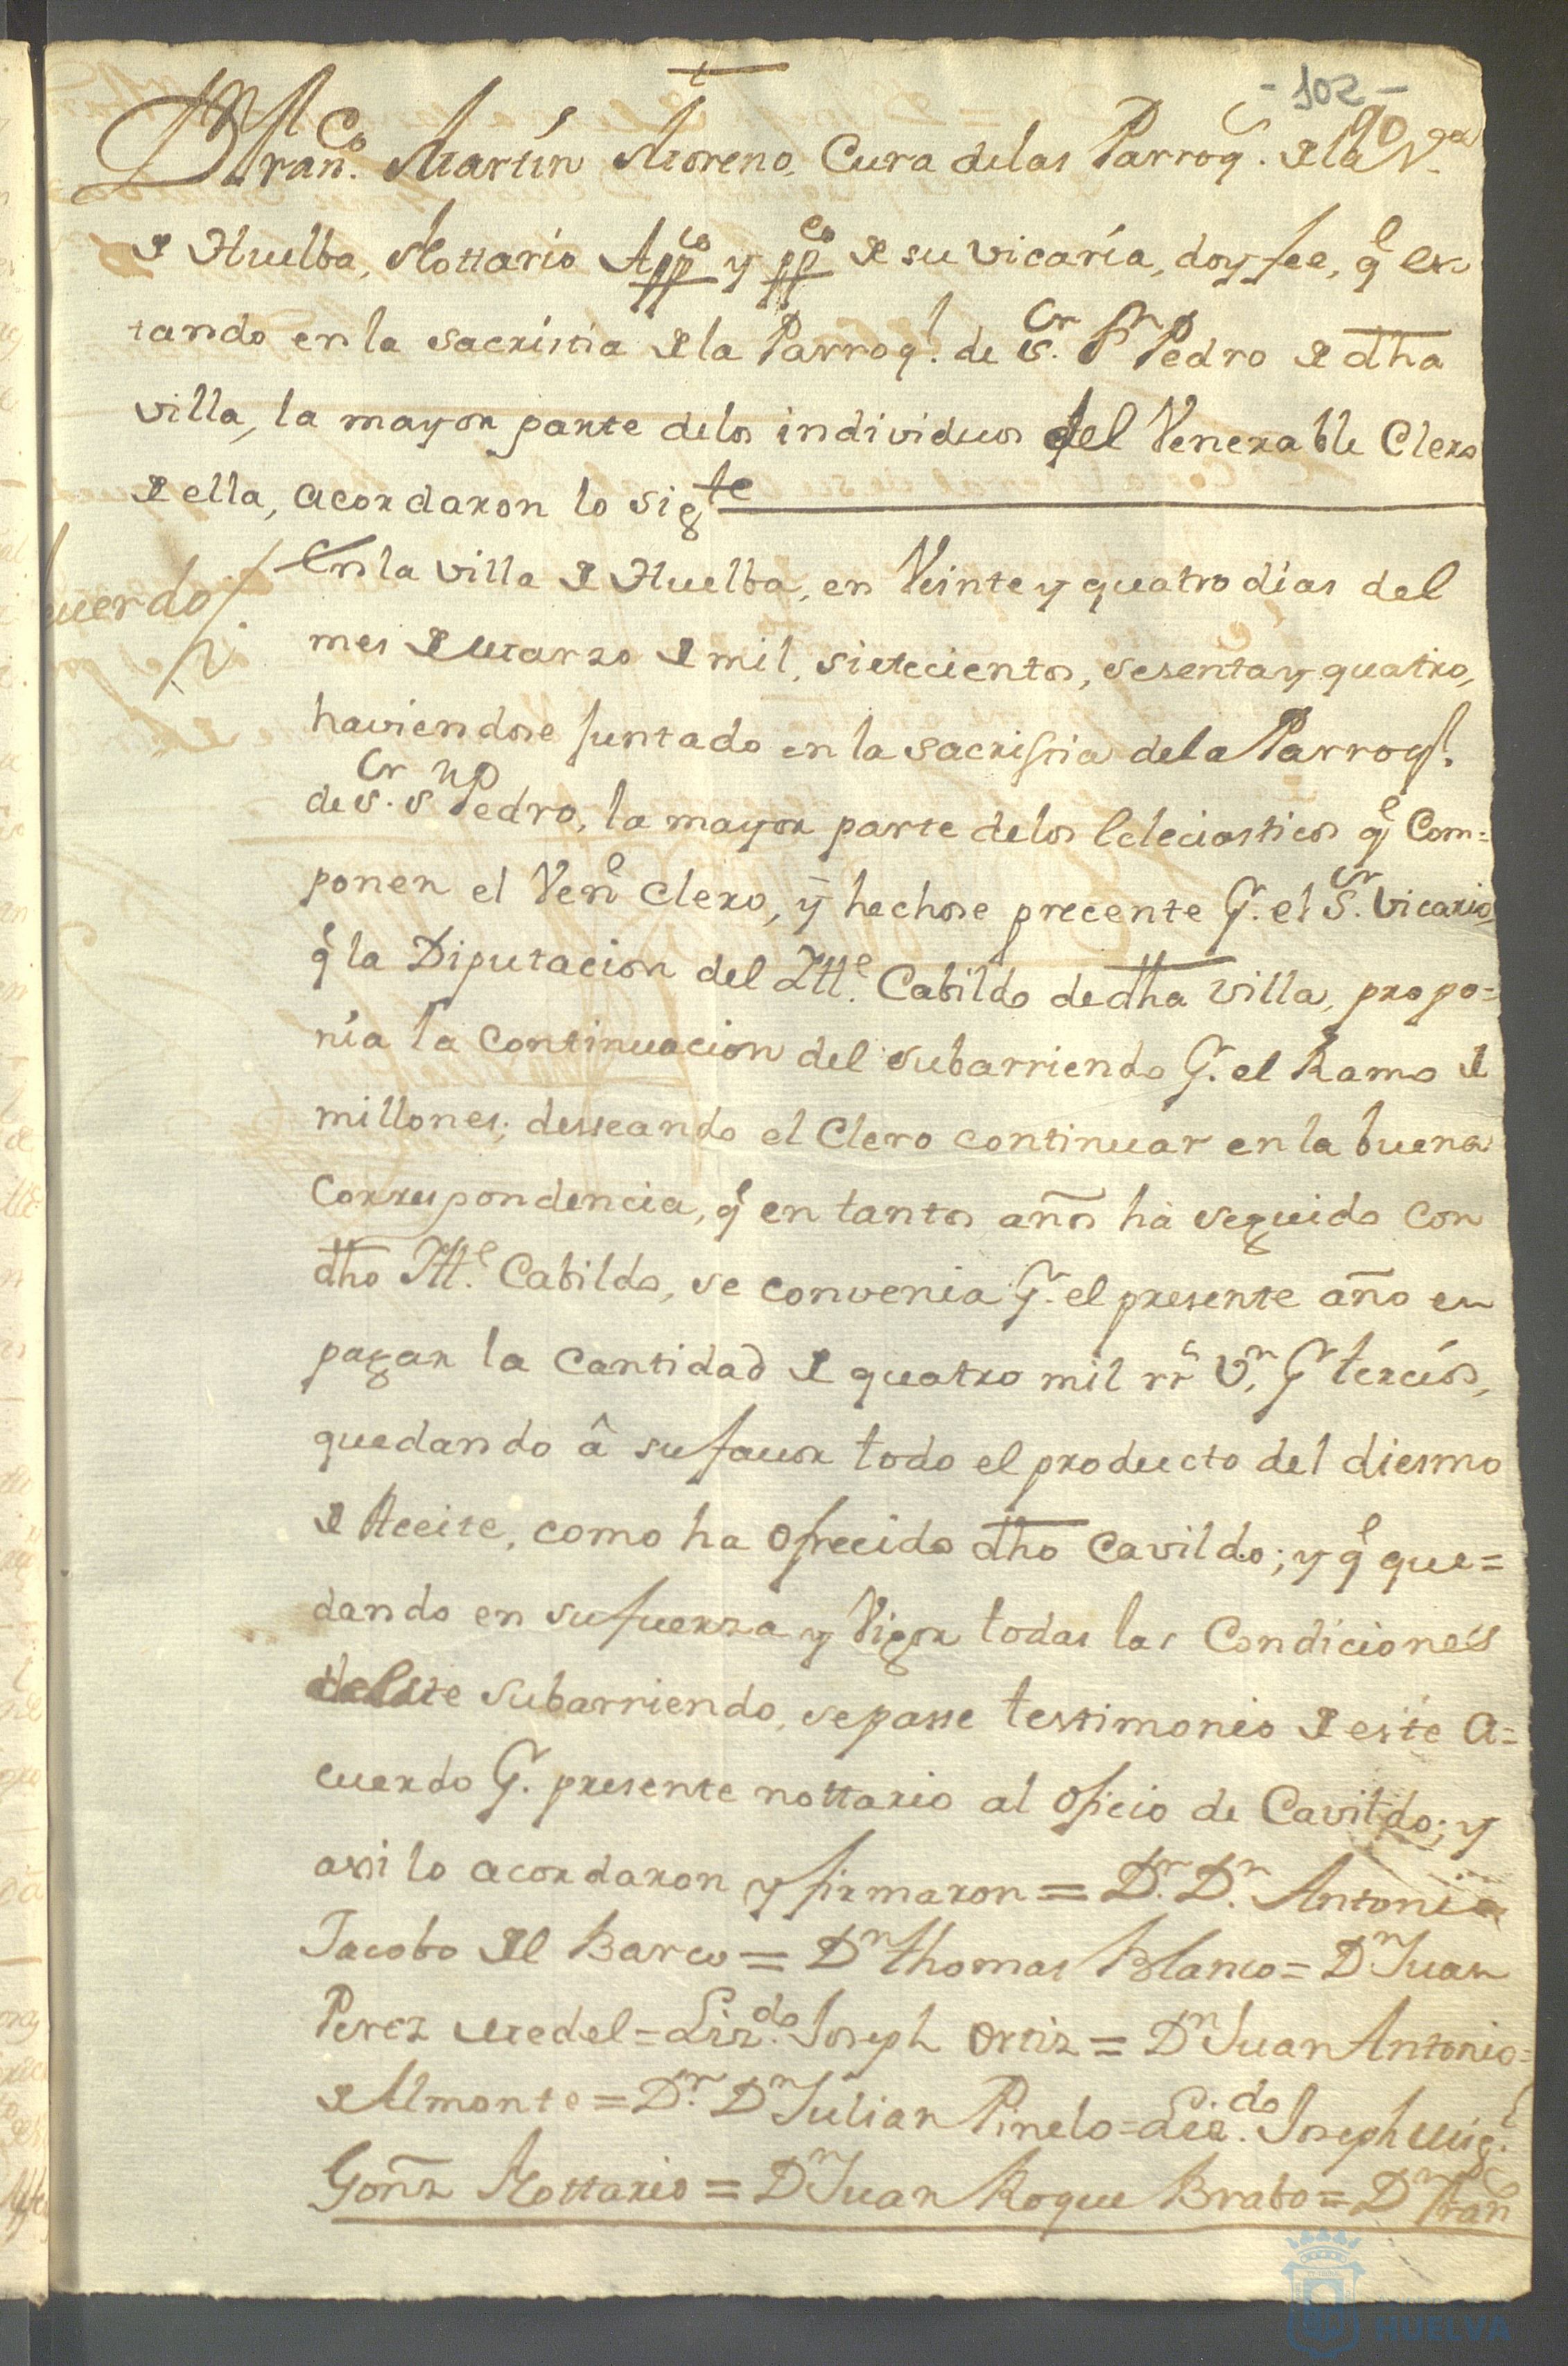 t
- 102 -
90
Dn Franco. Martín Moreno, Cura delas Parroqs. de la Va.
de Huelba, Nottario Appco y ppco de su vicaría, doy fee, qe es
tando en la sacristia de la Parroql. de Sr. Sn Pedro de dha
villa, la mayor parte delos individuos del Venerable Clero
de ella, acordaron lo sigte
uerdo
En la villa de Huelba, en Veinte y quatro días del
mes de marzo de mil, setecientos, sesenta y quatro,
haviendose juntado en la sacristia dela Parroql.
de Sr. Sn Pedro, la mayor parte delos Ecleciasticos qe Com=
ponen el Vene Clero, y hechose precente Pr. el Sr. Vicario,
qe la Diputacion del Itte. Cabildo de dha villa, propo=
nía la continuacion del subarriendo Pr. el Ramo de
millones; desseando el Clero continuar en la buena
Correspondencia, qe en tantos años ha seguido con
dho Itte. Cabildo, se convenia Pr. el presente año en
pagar la cantidad de quatro mil rrs Vn, Pr tercios,
quedando â su favor todo el producto del diesmo
de Aceite, como ha ofrecido dho Cavildo; y qe que=
dando en su fuerza y Vigor todas las Condiciones
deeste subarriendo, se passe testimonio de este a=
cuerdo Pr. presente nottario al oficio de Cavildo; y
assi lo acordaron y firmaron = Dr. Dn. Antonio
Jacobo del Barco = Dn Thomas Blanco = Dn Juan
Perez Medel = Lizdo. Joseph Ortiz = Dn Juan Antonio=
de Almonte = Dr. Dn Julian Pinelo = Licdo. Joseph Migl.
Gonz Nottario = Dn Juan Roque Brabo = Dn Franco
HUELVA